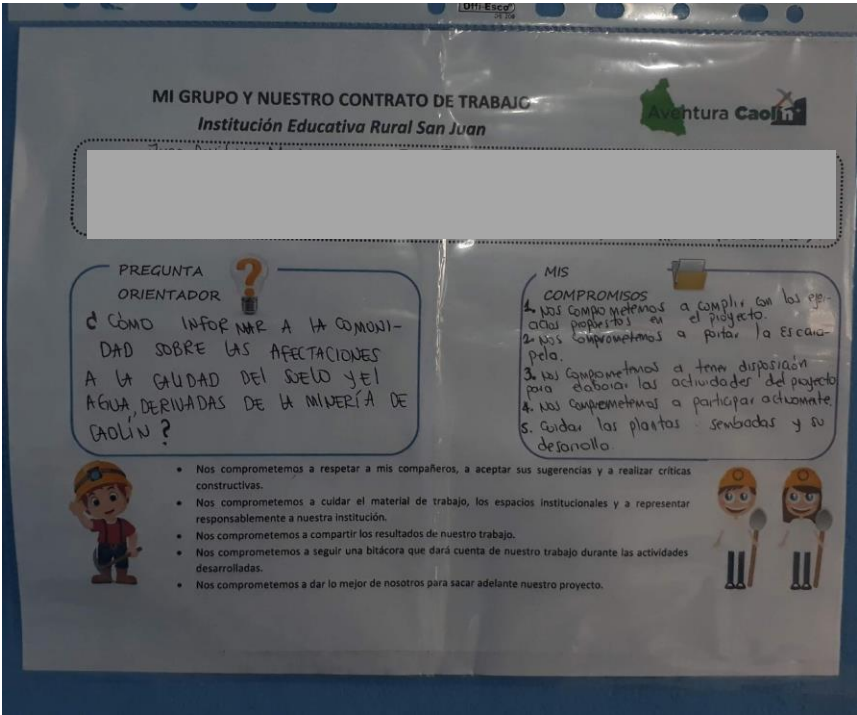 Offi-Esco
MI GRUPO Y NUESTRO CONTRATO DE TRABAJO
Institución Educativa Rural San Juan
Aventura Caolín
PREGUNTA
ORIENTADOR
¿CÓMO INFORMAR A LA COMONI-
DAD SOBRE LAS AFECTACIONES
A LA CALIDAD DEl SUELO Y El
AGUA, DERIVADAS DE LA MINERÍA DE
CAOLÍN?
MIS
COMPROMISOS
1. Nos comprometemos a cumplir con los eje-
propuestos en el proyecto.
2. Nos comprometemos a portar la escara-
pela.
3. Nos comprometemos a tener disposición
para elaborar las actividades del proyecto
4. Nos comprometemos a participar activamente.
5. Cuidar las plantas sembradas y su
desarrollo.
• Nos comprometemos a respetar a mis compañeros, a aceptar sus sugerencias y a realizar críticas
constructivas.
• Nos comprometemos a cuidar el material de trabajo, los espacios institucionales y a representar
responsablemente a nuestra institución.
• Nos comprometemos a compartir los resultados de nuestro trabajo.
• Nos comprometemos a seguir una bitácora que dará cuenta de nuestro trabajo durante las actividades
desarrolladas.
• Nos comprometemos a dar lo mejor de nosotros para sacar adelante nuestro proyecto.